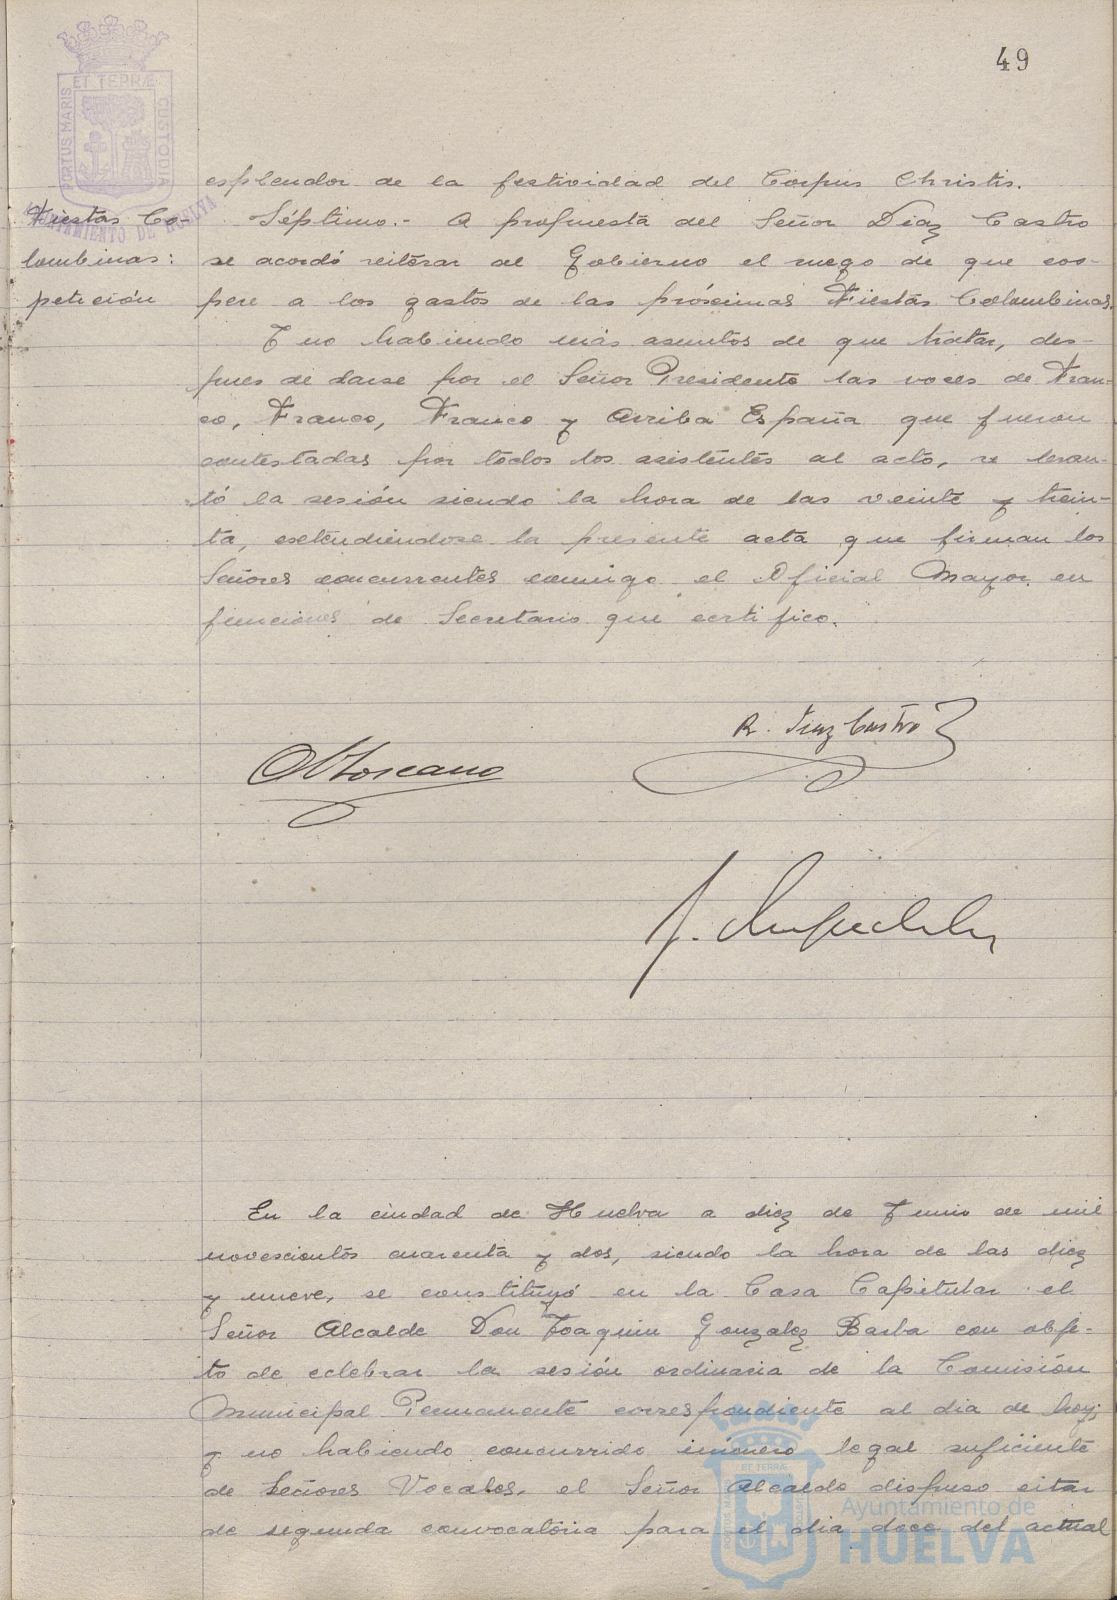 49
PORTUS MARIS ET TERRÆ CUSTODIA
AYUNTAMIENTO DE HUELVA
esplendor de la festividad del Corpus Christi.
Fiestas Co-
lombinas:
petición
Séptimo.- A propuesta del Señor Diaz Castro
se acordó reiterar al Gobierno el ruego de que coo-
pere a los gastos de las próximas Fiestas Colombinas.
Y no habiendo más asuntos de que tratar, des-
pues de darse por el Señor Presidente las voces de Fran-
co, Franco, Franco y Arriba España que fueron
contestadas por todos los asistentes al acto, se levan-
tó la sesión siendo la hora de las veinte y trein-
ta, extendiendose la presente acta que firman los
Señores concurrentes conmigo el Oficial Mayor en
funciones de Secretario que certifico.
R. Diaz Castro
En la ciudad de Huelva a diez de Junio de mil
novescientos cuarenta y dos, siendo la hora de las diez
y nueve, se constituyó en la Casa Capitular el
Señor Alcalde Don Joaquin Gonzalez Barba con obje-
to de celebrar la sesión ordinaria de la Comisión
Municipal Permanente correspondiente al dia de hoy;
y no habiendo concurrido número legal suficiente
de Señores Vocales, el Señor Alcalde dispuso citar
de segunda convocatoria para el dia doce del actual
PORTUS MARIS ET TERRÆ CUSTODIA
Ayuntamiento de
HUELVA